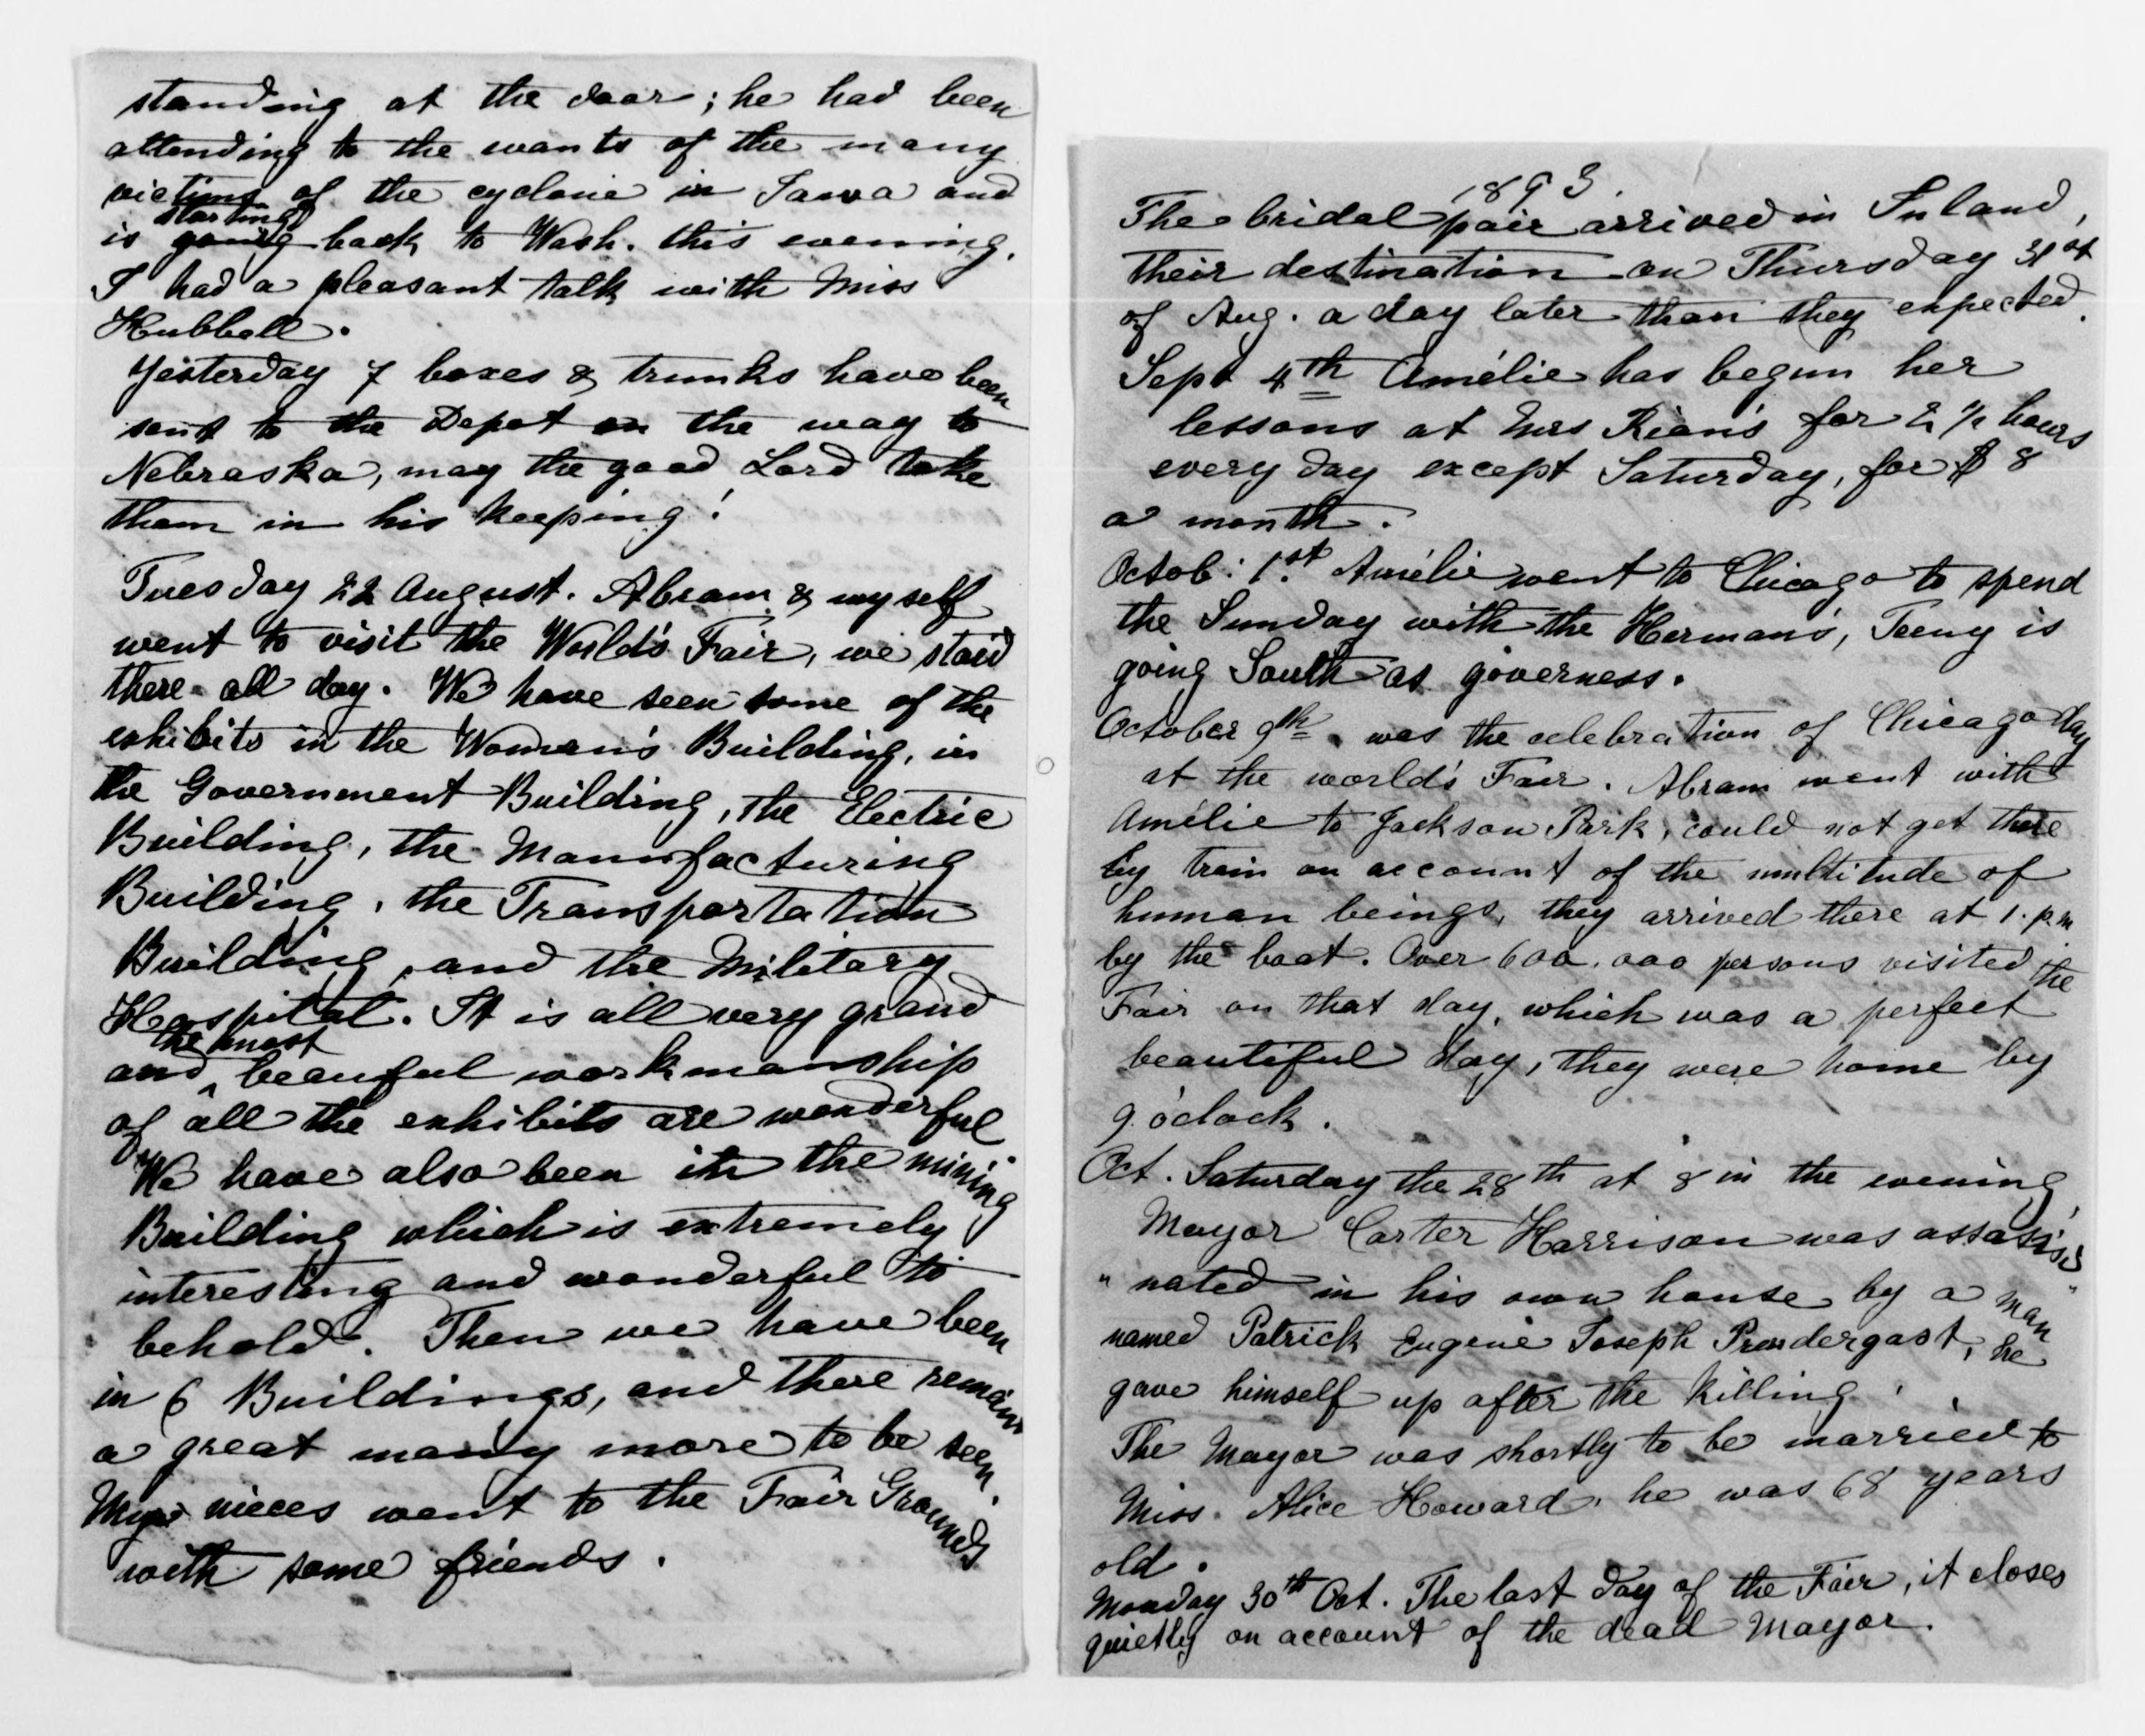 standing at the door; he had been
attending to the wants of the many
victims of the cyclone in Iowa and
starting
is going back to Wash. this evening.
I had a pleasant talk with Miss
Hubball.
Yesterday 7 boxes & trunks have been
sent to the Depot on the way to
Nebraska, may the good Lord take
them in his keeping!
Tuesday 22 August. Abram & myself
went to visit the World's Fair, we staid
there all day. We have seen some of the
exhibits in the Women's Building, in
the Government Building, the Electric
Building, the Manufacturing
Building, the Transportation
Building, and the Military
Hospital. It is all very grand
the most
and beauful workmanship
of all the exhibits are wonderful
We have also been in the mining
Building which is extremely
interesting and wonderful to
behold. Then we have been
in 6 Buildings, and there remain
a great many more to be seen.
My nieces went to the Fair Grounds
with some friends.
1893.
The bridal pair arrived in Inland,
their destination on Thursday 31st
of Aug. a day later than they expected.
Sept 4th Amélie has begun her
lessons at Mrs Rian's for 2 1/2 hours
every day except Saturday, for $ 8
a month.
Octob: 1st. Amélie went to Chicago to spend
the Sunday with the Herman's, Teeny is
going South as governess.
October 9th was the celebration of Chicago day
at the world's Fair. Abram went with
Amélie to Jackson Park, could not get there
by train on account of the multitude of
human beings, they arrived there at 1. p.m
by the boat. Over 600.000 persons visited the
Fair on that day, which was a perfect
beautiful day, they were home by
9 o'clock.
Oct. Saturday the 28th at 8 in the evening,
Mayor Carter Harrison was assassi"
"nated in his own house by a man
named Patrick Eugene Joseph Prendergast, he
gave himself up after the killing.
The Mayor was shortly to be married to
Miss. Alice Howard, he was 68 years
old.
Monday 30th Oct. The last day of the Fair, it closes
quietly on account of the dead Mayor.